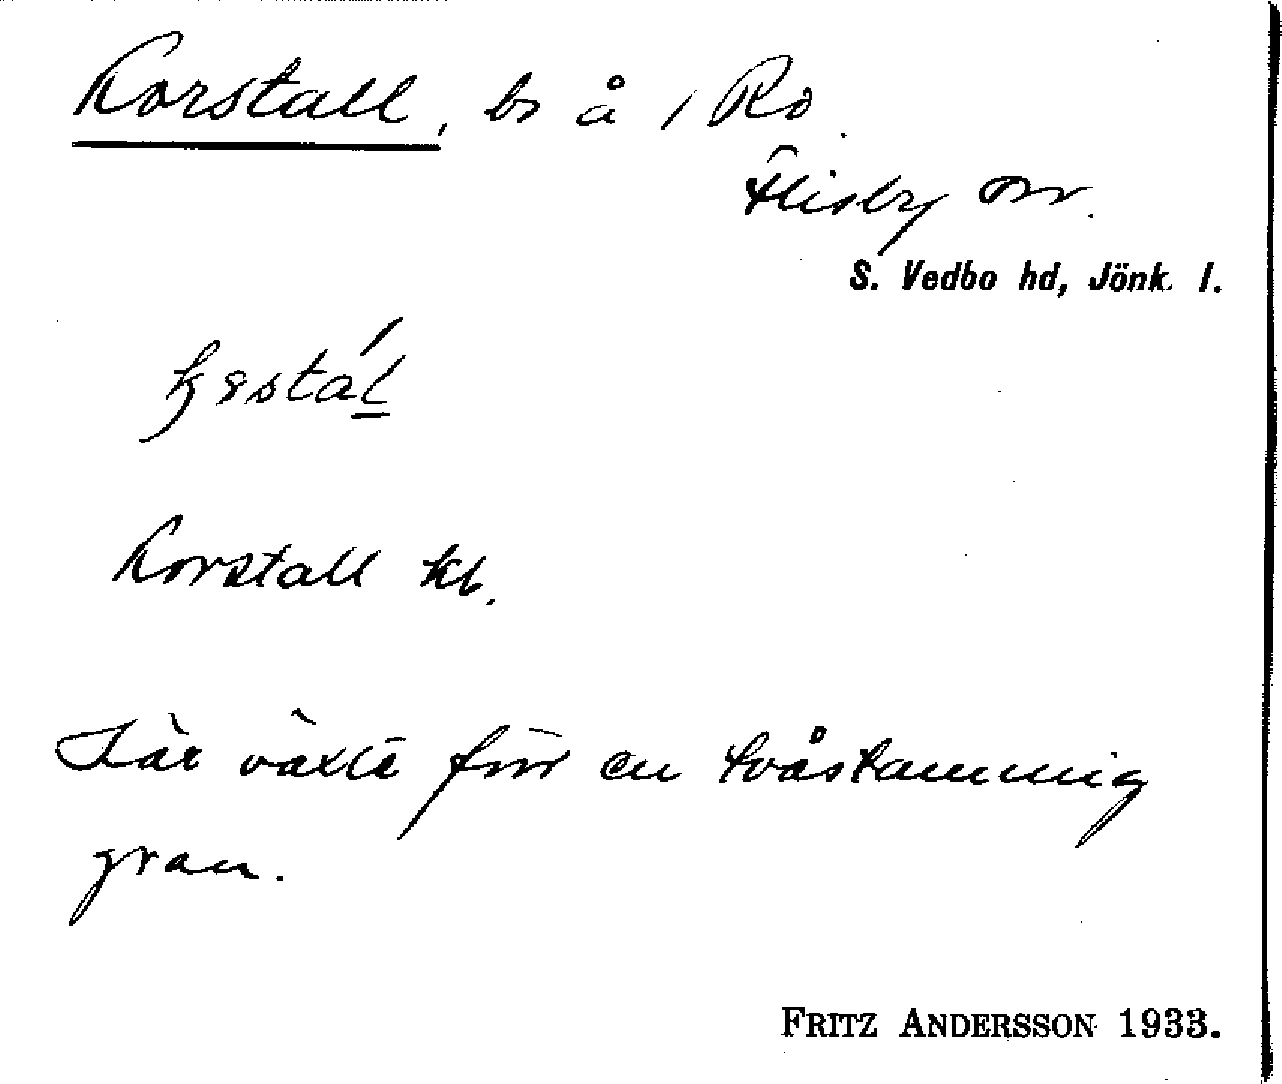 Korstall, bs å 1 Ro.
Flisby sn.
S. Vedbo hd, Jönk. l.
Korstall kb.
Här växte förr en tvåstammig
gran.
FRITZ ANDERSSON 1933.